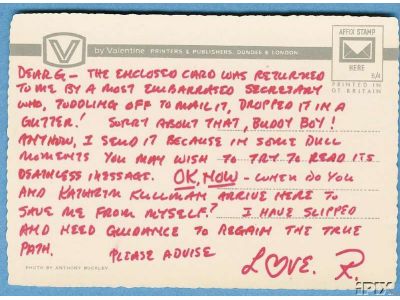 by Valentine PRINTERS & PUBLISHERS, DUNDEE & LONDON
AFFIX STAMP
HERE
PRINTED IN
GT BRITAIN
DEAR G - THE ENCLOSED CARD WAS RETURNED
TO ME BY A MOST EMBARRASED SECRETARY
WHO, TODDLING OFF TO MAIL IT, DROPPED IT IN A
GUTTER! SORRY ABOUT THAT, BUDDY BOY!
ANYHOW, I SEND IT BECAUSE IN SOME DULL
MOMENTS YOU MAY WISH TO TRY TO READ ITS
DEATHLESS MESSAGE. OK, NOW - WHEN DO YOU
AND KATHRYN KULLMAN ARRIVE HERE TO
SAVE ME FROM MYSELF? I HAVE SLIPPED
AND NEED GUIDANCE TO REGAIN THE TRUE
PATH. PLEASE ADVISE
LOVE. R.
PHOTO BY ANTHONY BUCKLEY